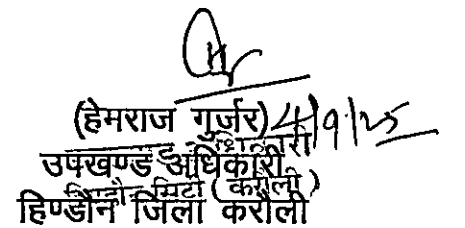 (हेमराज गुर्जर) 4/9/25
उपखण्ड अधिकारी
हिण्डौन जिला करौली